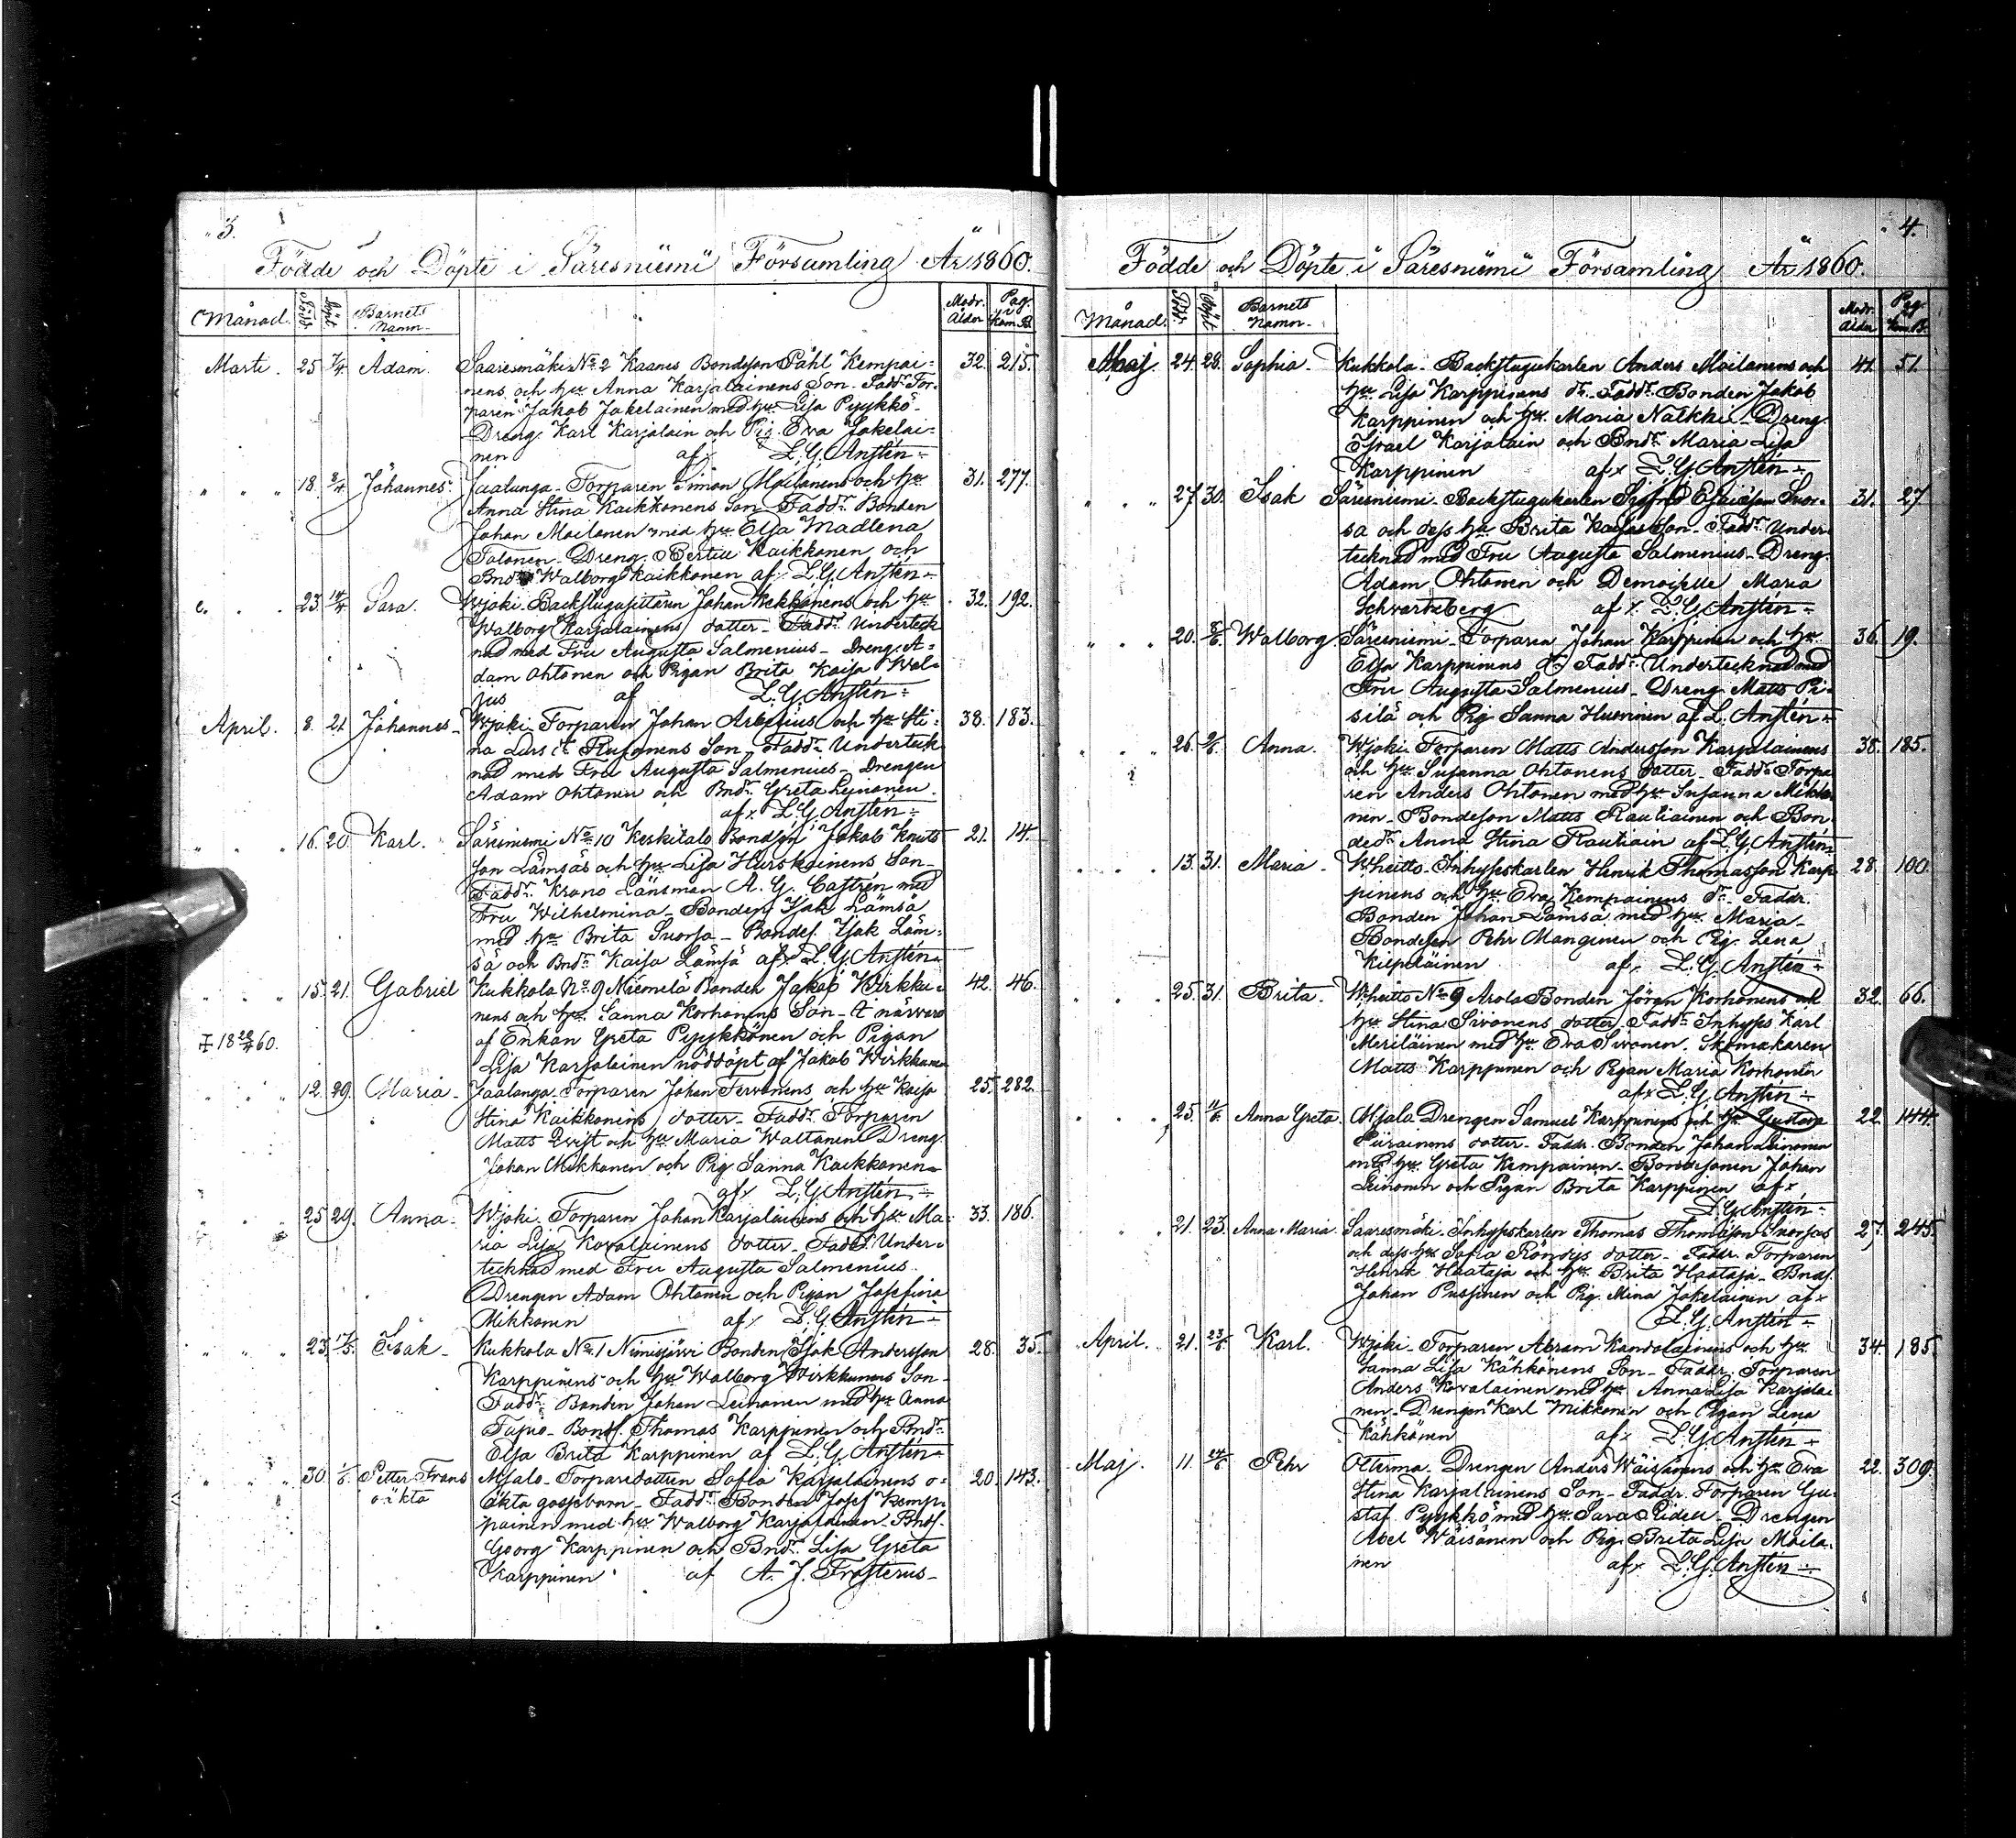 3.
Födde och Döpte i Säresniemi Församling År 1860.
Månad. Född. Döpt. Barnets Namn. Modr. Ålder Pag. i Kom. B.
Marti. 25 1/4 Adam. Saaresmäki No 2 Kaanes Bondeson Påhl Kempai= 32. 215.
nens och hu Anna Karjalainens Son. Faddr Tor=
paren Jakob Jakelainen med hu Lisa Pyykkö-
Dreng. Karl Karjalain och Pig. Eva Jakelai=
nen af L. G. Anstén
" " " 18. 2/4 Johannes. Jaalanga. Torparen Simon Moilanens och hu 31. 277.
Anna Stina Kaikkonens Son. Faddr Bonden
Johan Moilanen med hu Elsa Madlena
Tolonen. Dreng. Bertil Kaikkonen och
Bndr Walborg Kaikkonen af L. G. Anstén
" " " 23. 14/4 Sara. Wjoki. Backstugusittaren Johan Kekkonens och hu 32. 192.
Walborg Karjalainens dotter. Faddr Underteck
nad med Fru Augusta Salmenius. Dreng. A=
dam Ohtonen och Pigan Brita Kaisa Wal=
jus af L. G. Anstén
April. 8. 21 Johannes. Wjoki. Torparen Johan Arbelius och hu Sti= 38. 183.
na Lars dr Rusonens Son. Faddr Underteck
nad med Fru Augusta Salmenius. Drengen
Adam Ohtonen och Bndr Greta Lynonen.
af L. G. Anstén
" " " 16. 20. Karl. Säresniemi No 10 Keskitalo Bondesn Jakob Knuts 21. 14.
son Lämsäs och hu Lisa Hurskainens Son.
Faddr Krono Länsman A. G. Castrén med
Fru Wilhelmina. Bonden Isak Lämsä
med hu Brita Suorsa. Bondes. Isak Läm=
sä och Bndr Kaisa Lämsä af L. G. Anstén
" " " 15. 21. Gabriel Kukkola No 9 Niemelä Bonden Jakob Wirkku= 42. 46.
nens och hu Sanna Korhonens Son. I närvaro
I 18 22/4 60. af Enkan Greta Pyykkönen och Pigan
Lisa Karjalainen nöddöpt af Jakob Wirkkunen
" " " 12. 29. Maria. Jaalanga. Torparen Johan Tervonens och hu Kaisa 25. 282.
Stina Kaikkonens dotter. Faddr Torparen
Matts Qvist och hu Maria Waltanen. Dreng.
Johan Mikkonen och Pig. Sanna Kaikkonen
af L. G. Anstén
" " " 25. 29. Anna. Wjoki. Torparen Johan Karjalainens och hu Ma= 33. 186.
ria Lisa Kovalainens dotter. Faddr Under=
tecknad med Fru Augusta Salmenius.
Drengen Adam Ohtonen och Pigan Josefina
Mikkonen af L. G. Anstén
" " " 23. 17/5. Isak. Kukkola No 1 Nimisjärvi Bonden Isak Andersson 28. 35.
Karppinens och hu Walborg Wirkkunens Son.
Faddr Bonden Johan Leinonen med hu Anna
Tapio. Bonds. Thomas Karppinen och Bndr
Elsa Brita Karppinen af L. G. Anstén
" " " 30. 1/6. Petter Frans Mjalo. Torparedottren Sofia Karjalainens o= 20. 143.
oäkta äkta gossebarn. Faddr Bonden Josef Kemp=
painen med hu Walborg Karjalainen. Bnds.
Georg Karppinen och Bndr Lisa Greta
Karppinen af A. J. Frosterus
4.
Födde och Döpte i Säresniemi Församling År 1860.
Månad. Född. Döpt. Barnets Namn. Modr. Ålder Pag. i Kom. B.
Maj 24. 28. Sophia. Kukkola. Backstugukarlen Anders Moilanens och 41. 51.
hu Lisa Karppinens dr. Faddr Bonden Jakob
Karppinen och hu Maria Nalkki. Dreng.
Israel Karjalain och Bndr Maria Lisa
Karppinen af L. G. Anstén
" " " 27. 30. Isak Säresniemi. Backstugukarlen Sigfrid Esaiasson Suor= 31. 27.
sa och dess hu Brita Kaisas Son. Faddr Under=
tecknad med Fru Augusta Salmenius. Dreng.
Adam Ohtonen och Demoiselle Maria
Schvartzberg af L. G. Anstén
" " " 20. 3/6. Walborg. Säresniemi. Torparen Johan Karppinen och hu 36. 19.
Elsa Karppinens dr Faddr Undertecknad med
Fru Augusta Salmenius. Dreng. Matts Pi=
silä och Pig Sanna Huovinen af L. Anstén
" " " 26. 2/6. Anna. Wjoki. Torparen Matts Andersson Karjalainens 38. 185.
och hu Susanna Ohtonens dotter. Faddr Torpa
ren Anders Ohtonen med hu Susanna Mikko
nen. Bondeson Matts Rautiainen och Bon
dedr Anna Stina Rautiain af L. G. Anstén
" " " 13. 31. Maria. Wheitto. Inhysskarlen Henrik Thomasson Karp 28. 100.
pinens och hu Eva Kempainens dr. Faddr.
Bonden Johan Lämsä med hu Maria.
Bondeson Pehr Manginen och Pig. Lena
Kilpeläinen af L. G. Anstén
" " " 25. 31. Brita. Wheitto No 9 Arola Bonden Jöran Korhonens och 32. 66.
hu Stina Sivonens dotter. Faddr Inhyss Karl
Meriläinen med hu Eva Sivonen. Skomakaren
Matts Karppinen och Pigan Maria Korhonen
af L. G. Anstén
" " " 25. 11/6. Anna Greta. Mjalo Drengen Samuel Karppinens och hu Gustava 22. 144.
Piirainens dotter. Faddr. Bonden Johan Leinonen
med hu Greta Kempainen. Bondesonen Johan
Leinonen och Pigan Brita Karppinen af
L. G. Anstén
" 21. 23. Anna Maria. Saaresmäki. Inhysskarlen Thomas Thomasson Suorsas 27. 245.
och dess hu Sofia Röndys dotter. Faddr. Torparen
Henrik Haataja och hu Brita Haataja. Bnds.
Johan Pussinen och Pig. Mina Jakelainen af
L. G. Anstén
April. 21. 23/6. Karl. Wjoki. Torparen Abram Kandolainens och hu 34. 185.
Sanna Lisa Kähkönens Son. Faddr. Torparen
Anders Kovalainen med hu Anna Lisa Karjalai
nen. Drengen Karl Mikkonen och Pigan Lena
Kähkönen af L. G. Anstén
Maj. 11. 24/6. Pehr Otterma. Drengen Anders Wäisänens och hu Eva 22. 309.
Stina Karjalainens Son. Faddr. Torparen Gu=
staf Pyykkö med hu Sara Lideu. Drengen
Abel Wäisänen och Pig. Brita Lisa Moila=
nen af L. G. Anstén